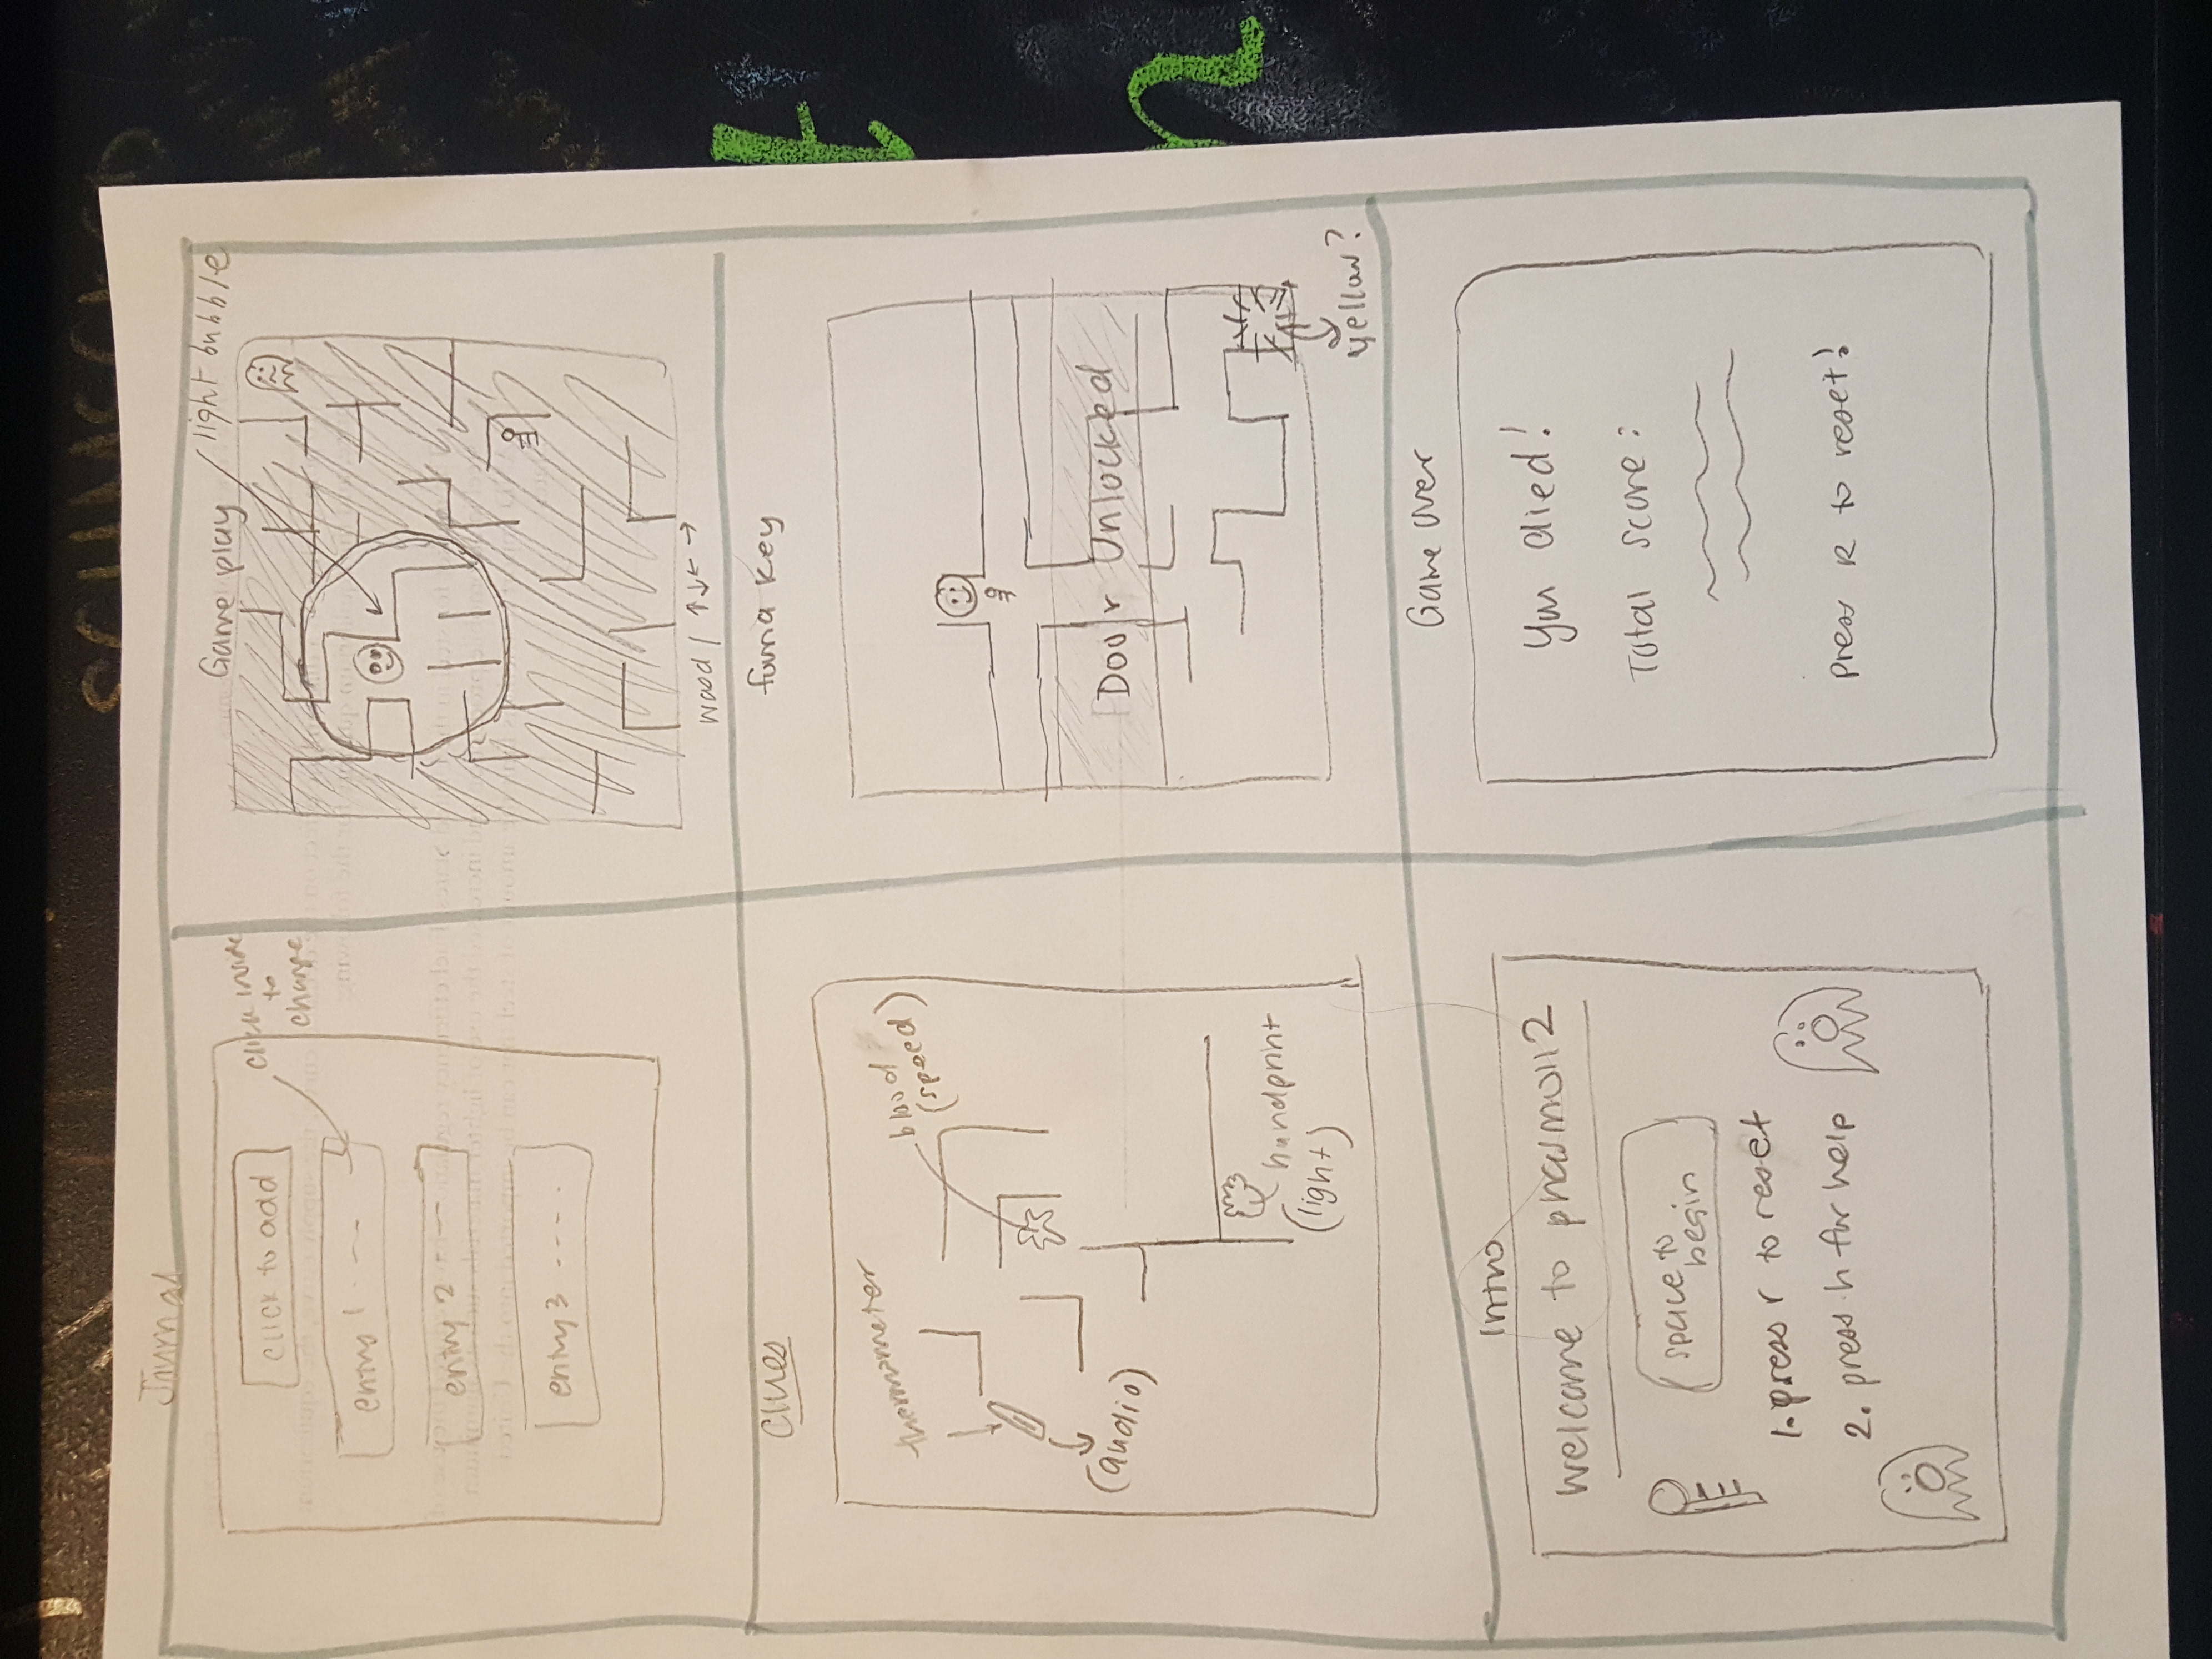 Journal
click to add
click inside
to
change
entry 1 - - -
entry 2 - -
entry 3 - - - -
Game play
light bubble
wasd / ↑↓← →
Clues
thermometer
(audio)
blood
(speed)
handprint
(light)
found key
Door Unlocked
yellow?
Intro
Welcome to
space to
begin
1. press r to reset
2. press h for help
Game over
You died!
Total score:
Press R to reset!